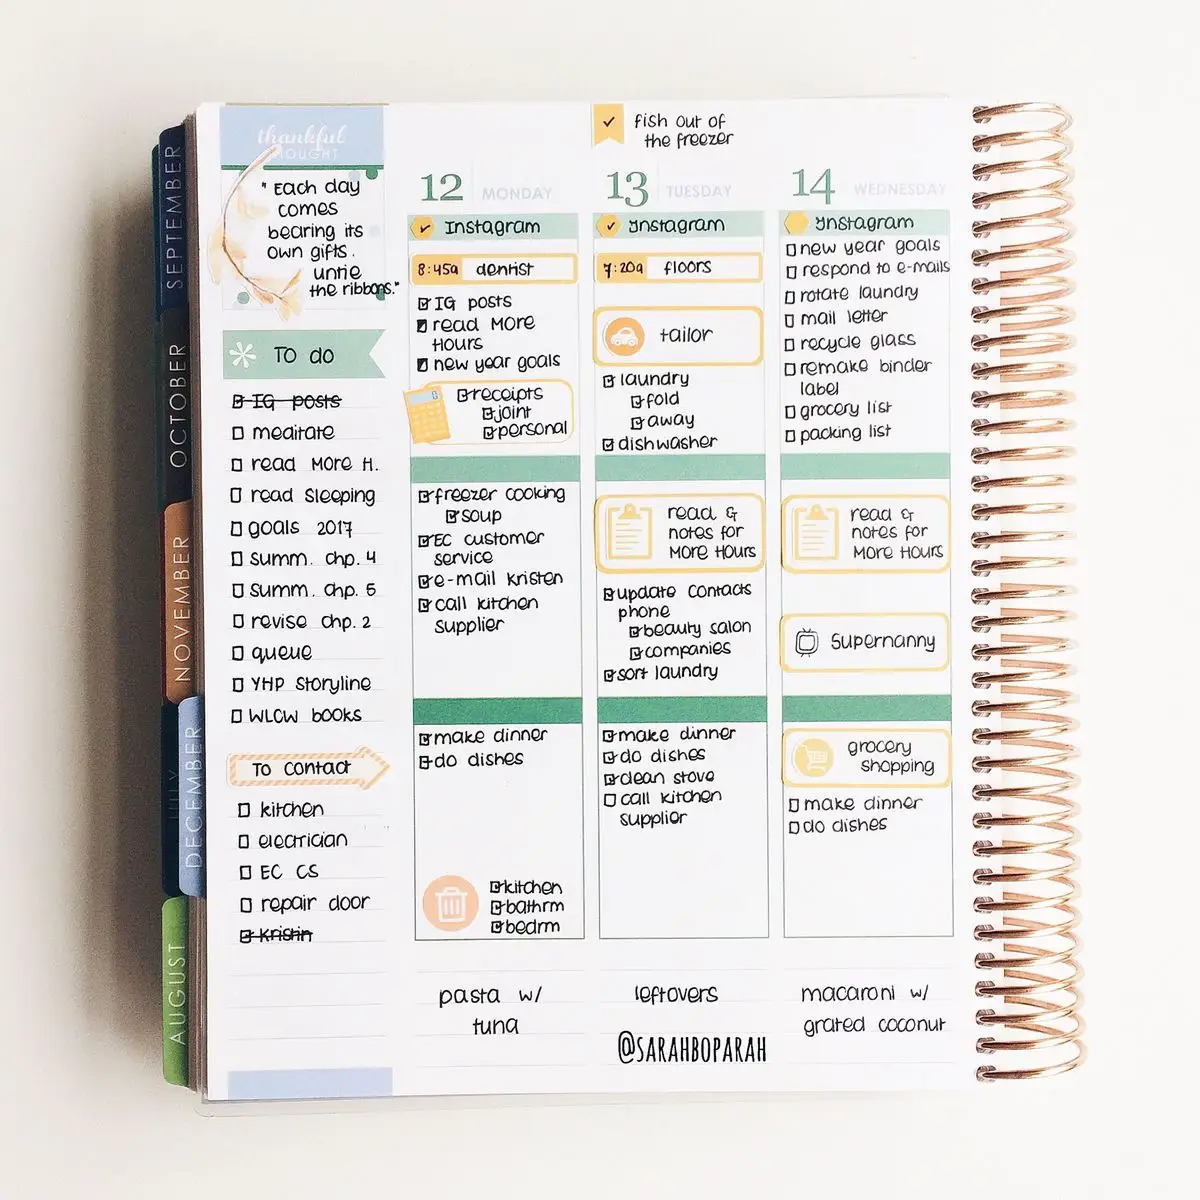 SEPTEMBER
OCTOBER
NOVEMBER
DECEMBER
JULY
AUGUST
thankful
THOUGHT
"Each day
comes
bearing its
own gifts.
untie
the ribbons."
TO do
IG posts
meditate
read More H.
read Sleeping
goals 2017
summ. chp. 4
summ. chp. 5
revise chp. 2
queue
YHP Storyline
WLCW books
To Contact
kitchen
electrician
EC CS
repair door
Kristin
12 MONDAY
Instagram
8:45a dentist
IG posts
read More
Hours
new year goals
receipts
joint
personal
freezer cooking
soup
EC customer
service
e-mail kristen
call kitchen
supplier
make dinner
do dishes
kitchen
bathrm
bedrm
pasta w/
tuna
fish out of
the freezer
13 TUESDAY
Instagram
7:20a floors
tailor
laundry
fold
away
dishwasher
read &
notes for
More Hours
update contacts
phone
beauty salon
companies
sort laundry
make dinner
do dishes
clean stove
call kitchen
supplier
leftovers
14 WEDNESDAY
Instagram
new year goals
respond to e-mails
rotate laundry
mail letter
recycle glass
remake binder
label
grocery list
packing list
read &
notes for
More Hours
Supernanny
grocery
shopping
make dinner
do dishes
macaroni w/
grated coconut
@SARAHBOPARAH